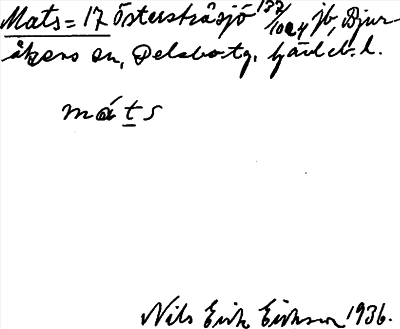 Mats = 17 Österstråsjö 137/1024 jb, Bjur-
åkers sn, Delsbo tg, Gävleb. l.
máts
Nils Eirk Eirksson 1936.